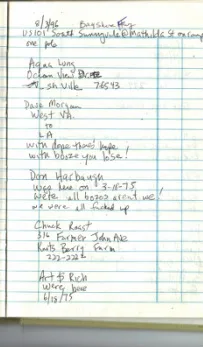 8/3/96 Bayshore Hwy
US101 South Sunnyvale @ Mathilda St onramp
one pole
Aqua Lung
Ocean View
Dave Morgan
West VA.
to
LA
with dope there's hope!
with booze you lose!
Don Harbaugh
was here on 3-18-75
we're all bozos aren't we!
we were all fucked up
Chuck Roast
316 Farmer John Ave
Knotts Berry Farm
222-2222
Art & Rich
Were here
6/18/75